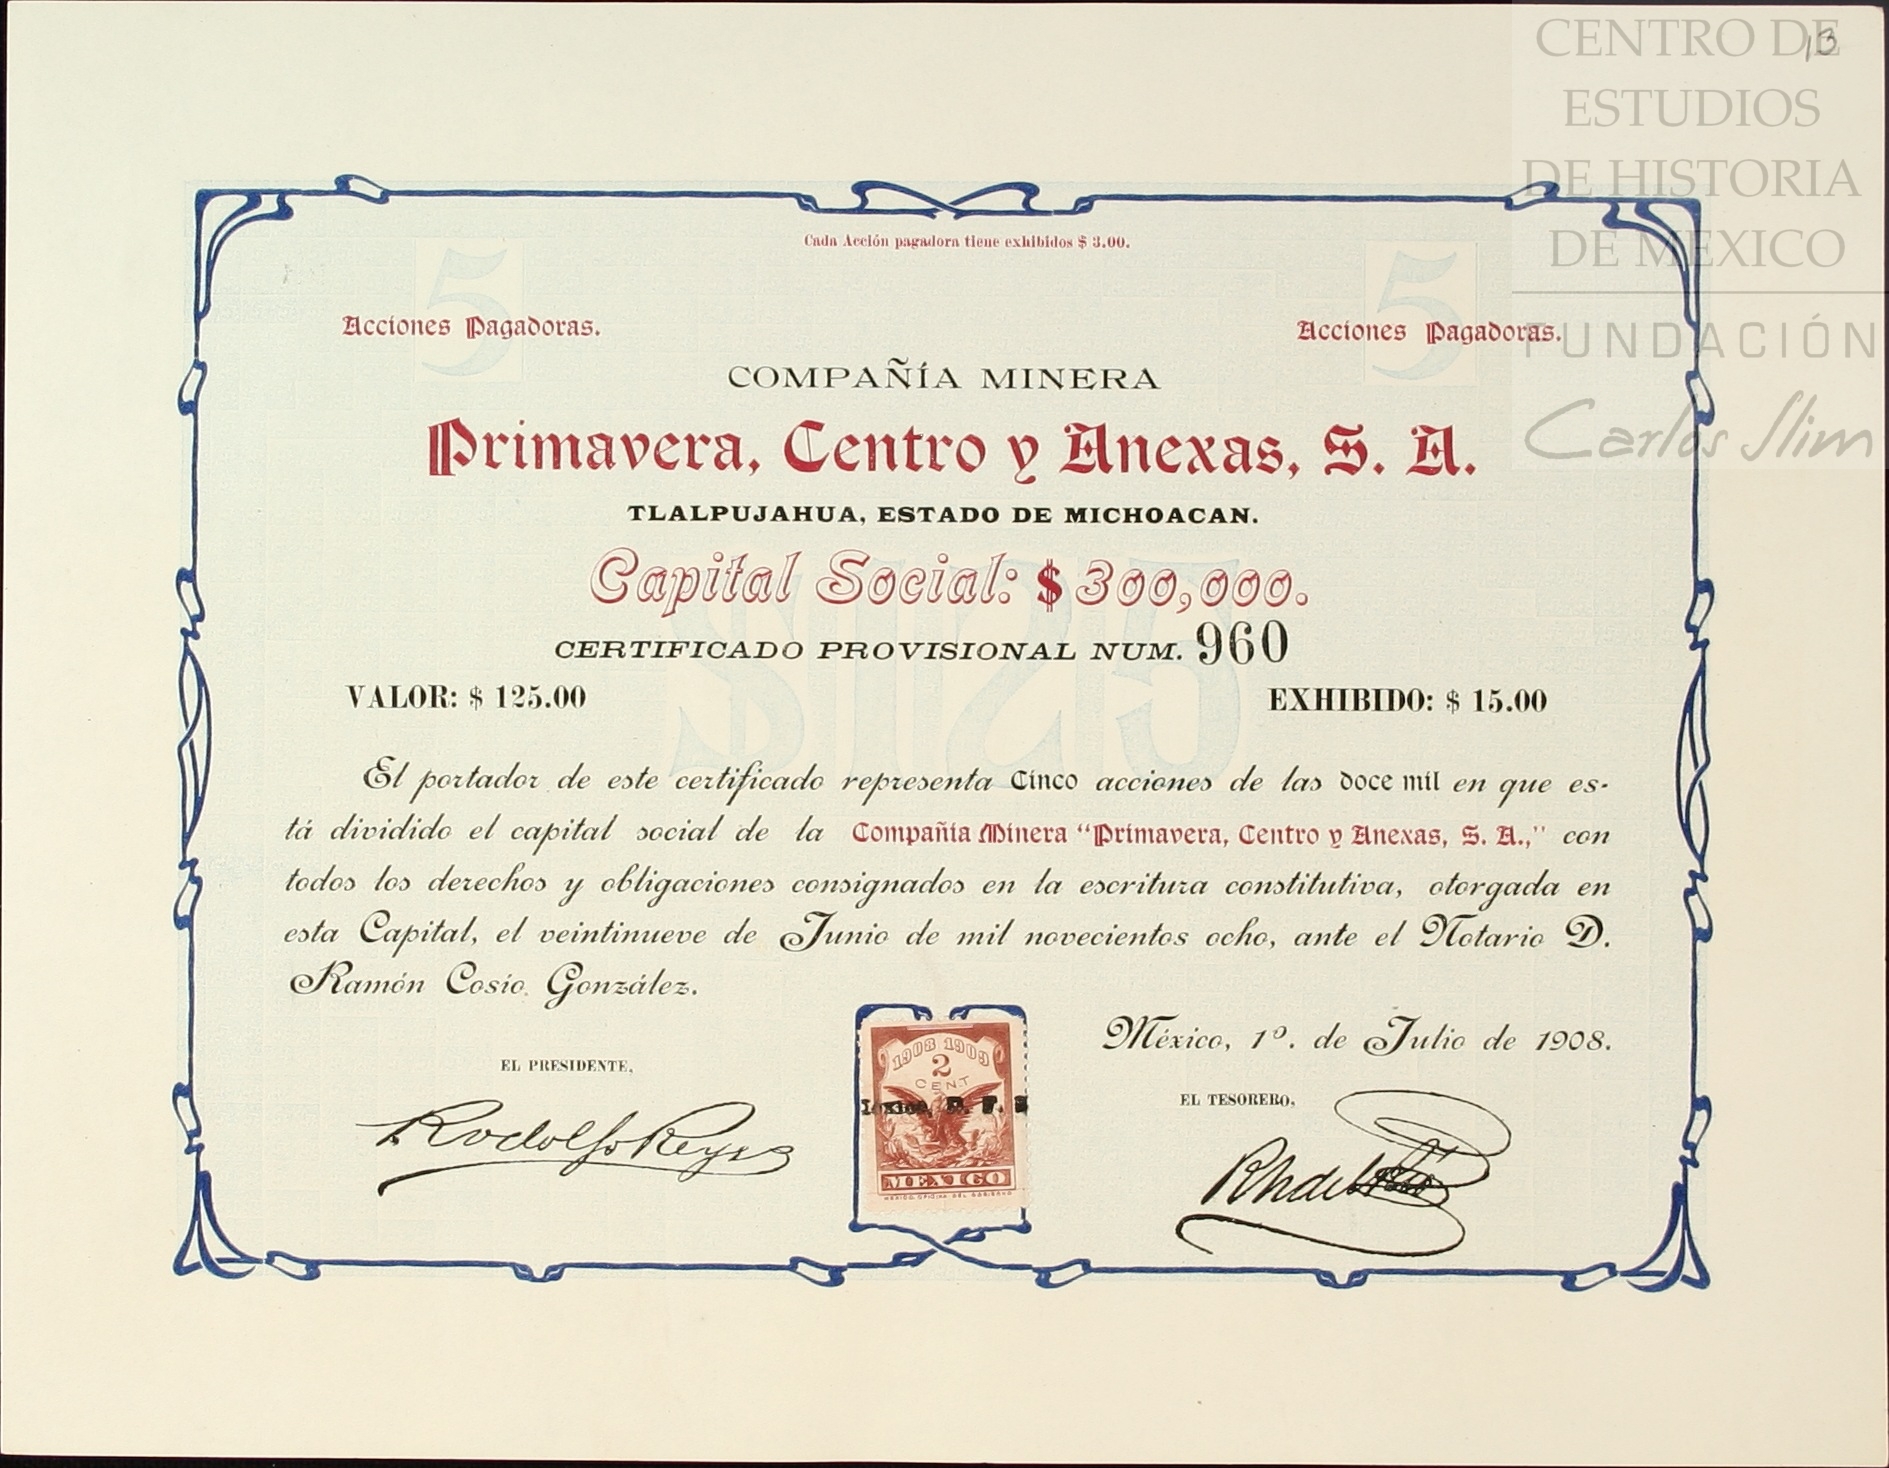 CENTRO DE
ESTUDIOS
DE HISTORIA
DE MEXICO
FUNDACIÓN
Carlos Slim
13
Cada Acción pagadora tiene exhibidos $ 3.00.
5
5
Acciones Pagadoras.
Acciones Pagadoras.
COMPAÑÍA MINERA
Primavera, Centro y Anexas, S. A.
TLALPUJAHUA, ESTADO DE MICHOACAN.
Capital Social: $ 300,000.
CERTIFICADO PROVISIONAL NUM. 960
$125
VALOR: $ 125.00
EXHIBIDO: $ 15.00
El portador de este certificado representa Cinco acciones de las doce mil en que es-
tá dividido el capital social de la Compañía Minera "Primavera, Centro y Anexas, S. A.," con
todos los derechos y obligaciones consignados en la escritura constitutiva, otorgada en
esta Capital, el veintinueve de Junio de mil novecientos ocho, ante el Notario D.
Ramón Cosío González.
México, 1º. de Julio de 1908.
EL PRESIDENTE,
Rodolfo Reyes
1908 1909
2
CENT
México, D. F.
MEXICO
MEXICO OFICINA DEL GOBIERNO
EL TESORERO,